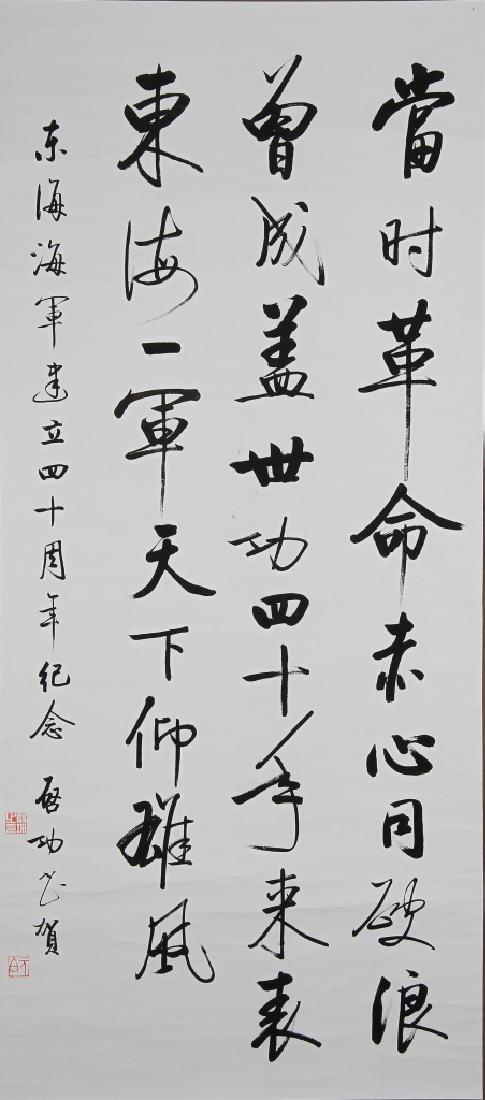 當时革命赤心同破浪
曾成盖世功四十年来表
東海一軍天下仰雄風
东海海軍建立四十周年纪念 启功 賀